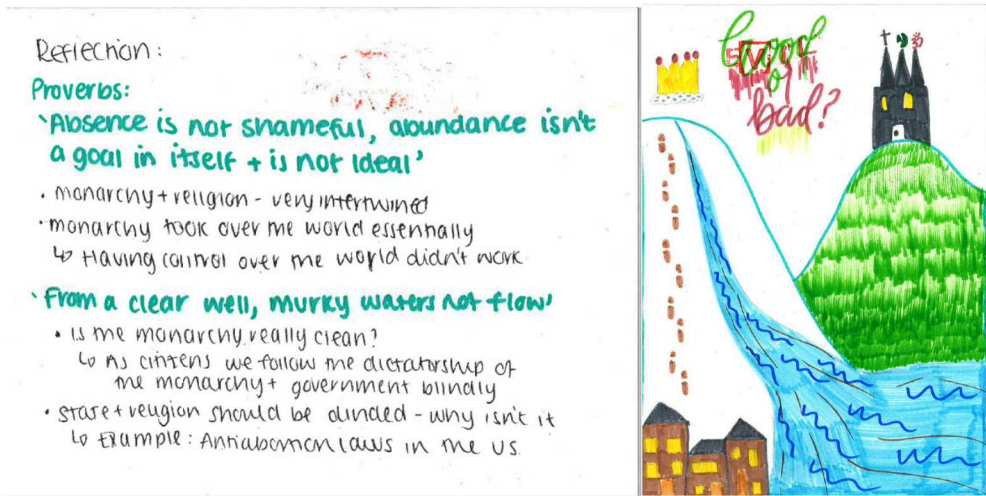 Reflection:
Proverbs:
'Absence is not shameful, abundance isn't
a goal in itself + is not Ideal'
• monarchy + religion - very intertwined
• monarchy took over the world essentially
↳ Having control over the world didn't work
'From a clear well, murky waters not flow'
• Is the monarchy really clean?
↳ As citizens we follow the dictatorship of
the monarchy + government blindly
• state + religion should be divided - why isn't it
↳ Example: Antiabortion laws in the US.
Good
or
bad?